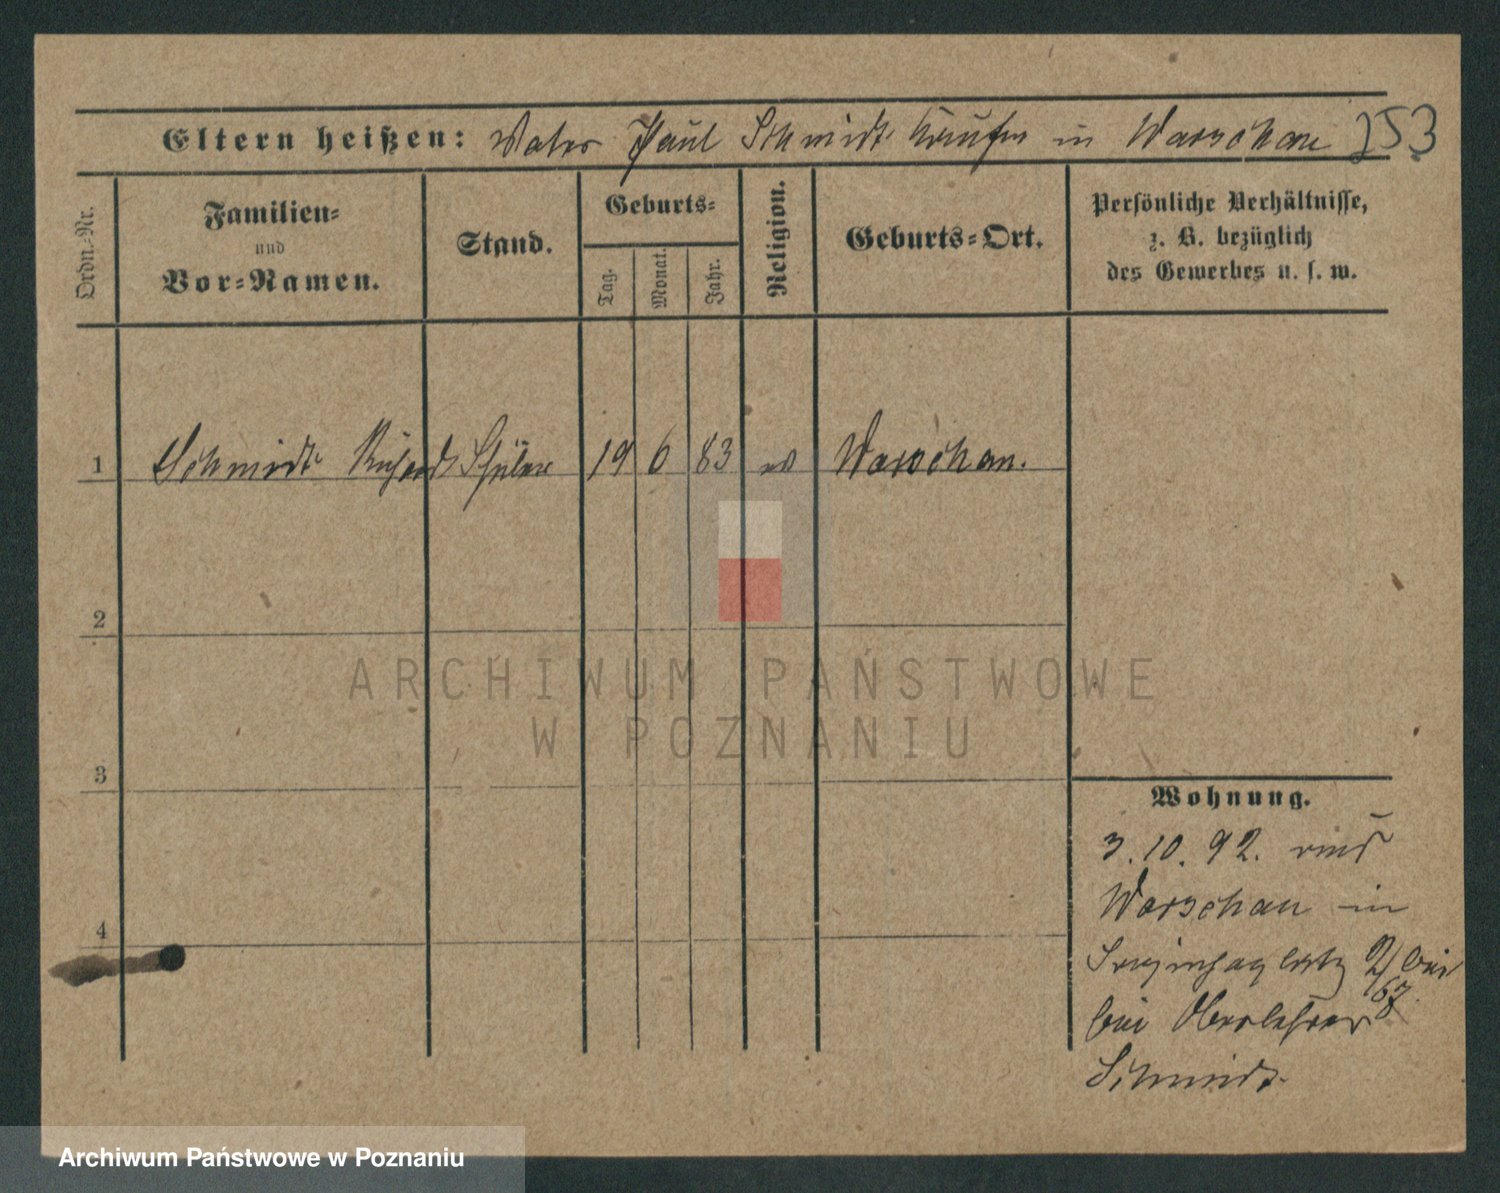 Eltern heißen: Vater Paul Schmidt Kaufm in Warschau 253
Ordn.-Nr.
Familien-
und
Vor-Namen.
Stand.
Geburts-
Tag.
Monat.
Jahr.
Religion.
Geburts-Ort.
Persönliche Verhältnisse,
z. B. bezüglich
des Gewerbes u. s. w.
1 Schmidt Richard Schüler 19 6 83 ev Warschau.
2
3
4
Wohnung.
3.10.92. aus
Warschau in
2/ bei
67
bei Oberlehrer
Schmidt
ARCHIWUM PAŃSTWOWE
W POZNANIU
Archiwum Państwowe w Poznaniu